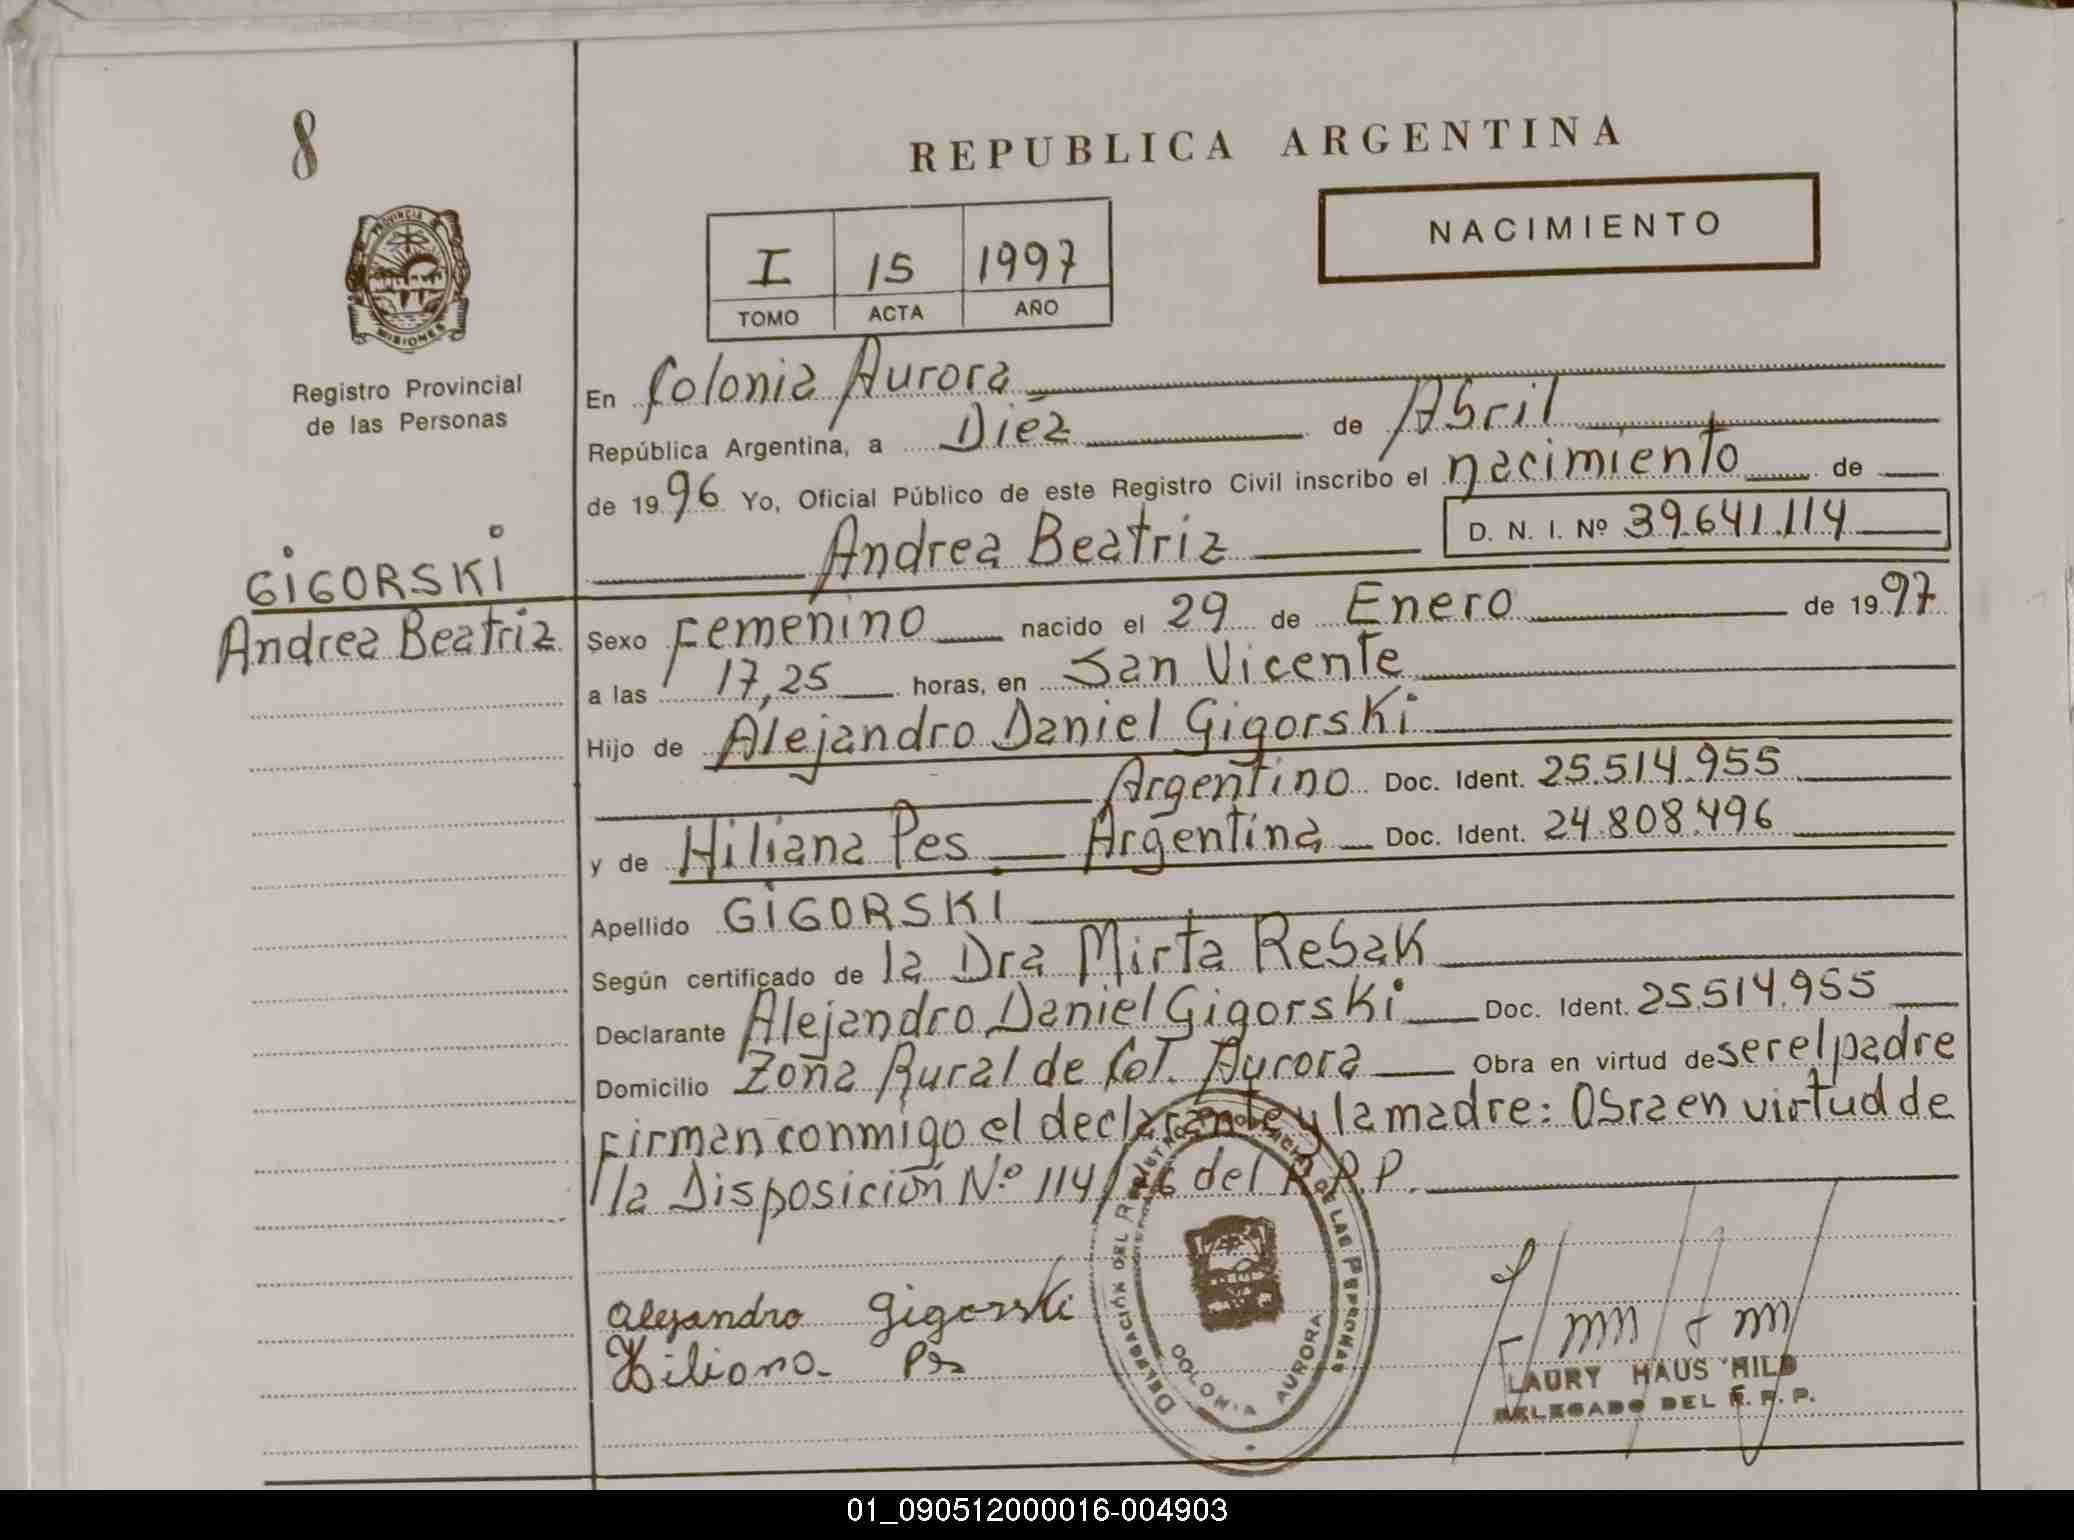 8
REPUBLICA ARGENTINA
NACIMIENTO
I 15 1997
TOMO ACTA AÑO
PROVINCIA DE MISIONES
Registro Provincial
de las Personas
En Colonia Aurora
República Argentina, a Diez de Abril
de 1996 Yo, Oficial Público de este Registro Civil inscribo el nacimiento de
Andrea Beatriz D. N. I. Nº 39.641.114
GIGORSKI
Andrea Beatriz
Sexo Femenino nacido el 29 de Enero de 1997
a las 17,25 horas, en San Vicente
Hijo de Alejandro Daniel Gigorski
Argentino Doc. Ident. 25.514.955
y de Hiliana Pes Argentina Doc. Ident. 24.808.496
Apellido GIGORSKI
Según certificado de la Dra Mirta Rebak
Declarante Alejandro Daniel Gigorski Doc. Ident. 25.514.955
Domicilio Zona Rural de Col. Aurora Obra en virtud de ser el padre
Firman conmigo el declarante y la madre: Obra en virtud de
la Disposición Nº 114/ del R.P.P.
Alejandro Gigorski
Hiliana Pes
DELEGACIÓN DEL REGISTRO PROVINCIAL DE LAS PERSONAS
COLONIA AURORA
LAURY HAUS HILD
DELEGADO DEL R. P. P.
01_090512000016-004903